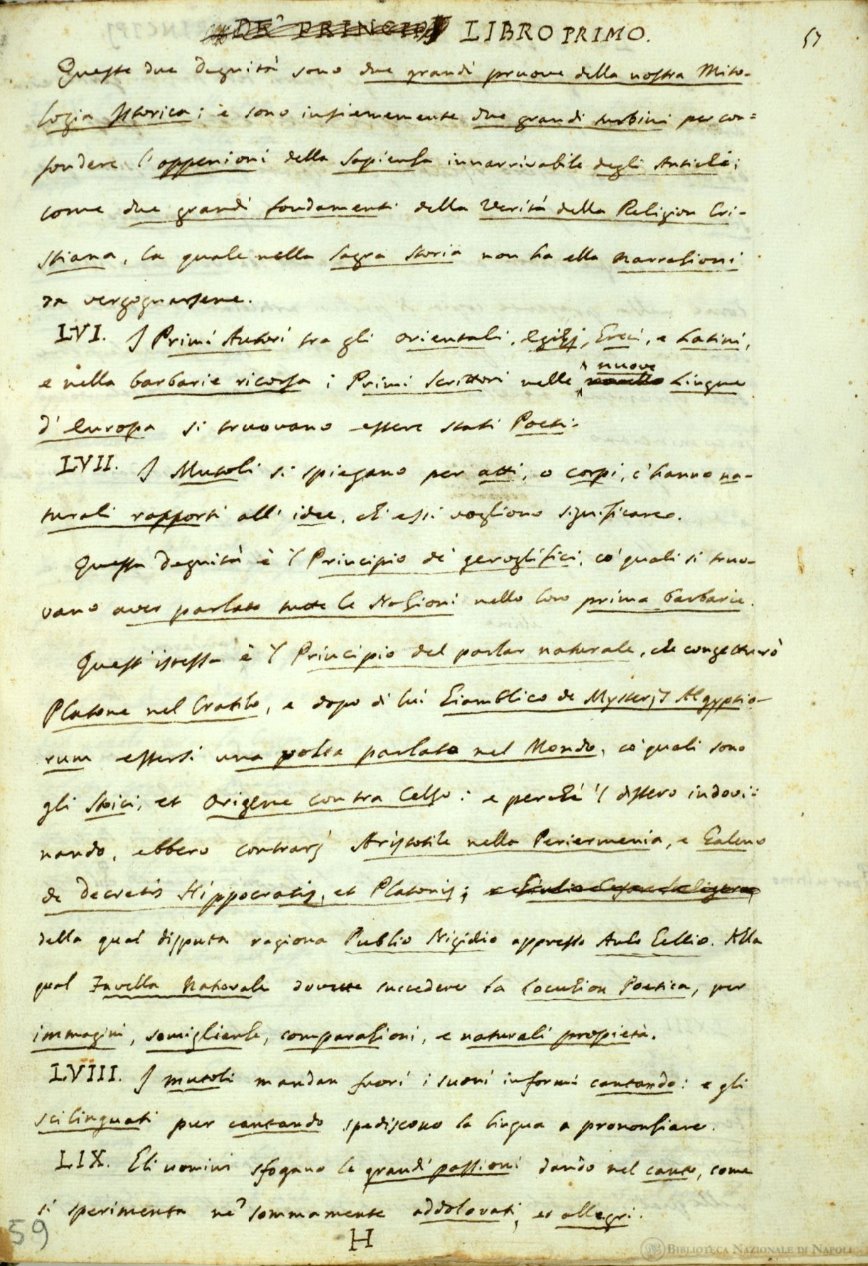 DE' PRINCIPJ LIBRO PRIMO. 57
Queste due degnità sono due grandi pruove della nostra Mito-
logia Istorica; e sono insiememente due grandi turbini per con-
fondere l'oppenioni della Sapienza innarrivabile degli Antichi;
come due grandi fondamenti della Verità della Religion Cri-
stiana, la quale nella Sagra Storia non ha ella narrazioni
da vergognarsene.
LVI. I Primi Autori tra gli Orientali, Egizj, Greci, e Latini,
e nella barbarie ricorsa i Primi Scrittori nelle nuove Lingue
d'Europa si truovano essere stati Poeti.
LVII. I Mutoli si spiegano per atti, o corpi, c'hanno na-
turali rapporti all'idee, ch'essi vogliono significare.
Questa Degnità è 'l Principio de' geroglifici, co' quali si truo-
vano aver parlato tutte le Nazioni nella loro prima barbarie.
Quest'istessa è 'l Principio del parlar naturale, che congetturò
Platone nel Cratilo, e dopo di lui Giamblico de Mysterijs Aegyptio-
rum essersi una volta parlato nel Mondo, co' quali sono
gli Stoici, et Origene contra Celso: e perchè 'l dissero indovi-
nando, ebbero contrarj Aristotile nella Periermenia, e Galeno
de decretis Hippocratis, et Platonis; e Giulio Cesare Scaligero,
della qual disputa ragiona Publio Nigidio appresso Aulo Gellio. Alla
qual Favella Naturale dovette succedere la locuzion Poetica, per
immagini, somiglianze, comparazioni, e naturali propietà.
LVIII. I mutoli mandan fuori i suoni informi cantando: e gli
scilinguati pur cantando spediscono la lingua a prononziare.
LIX. Gli uomini sfogano le grandi passioni dando nel canto, come
si sperimenta ne' sommamente addolorati, et allegri.
59 H
BIBLIOTECA NAZIONALE DI NAPOLI